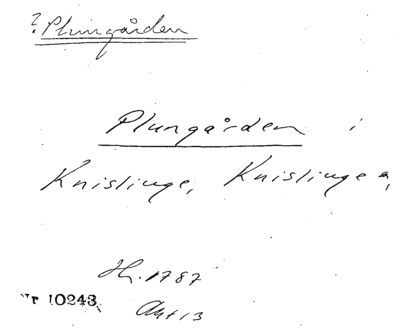 ? Plungården
Plungården i
Knislinge, Knislinge s,
Hr. 1787
Nr 10243
Akt 13